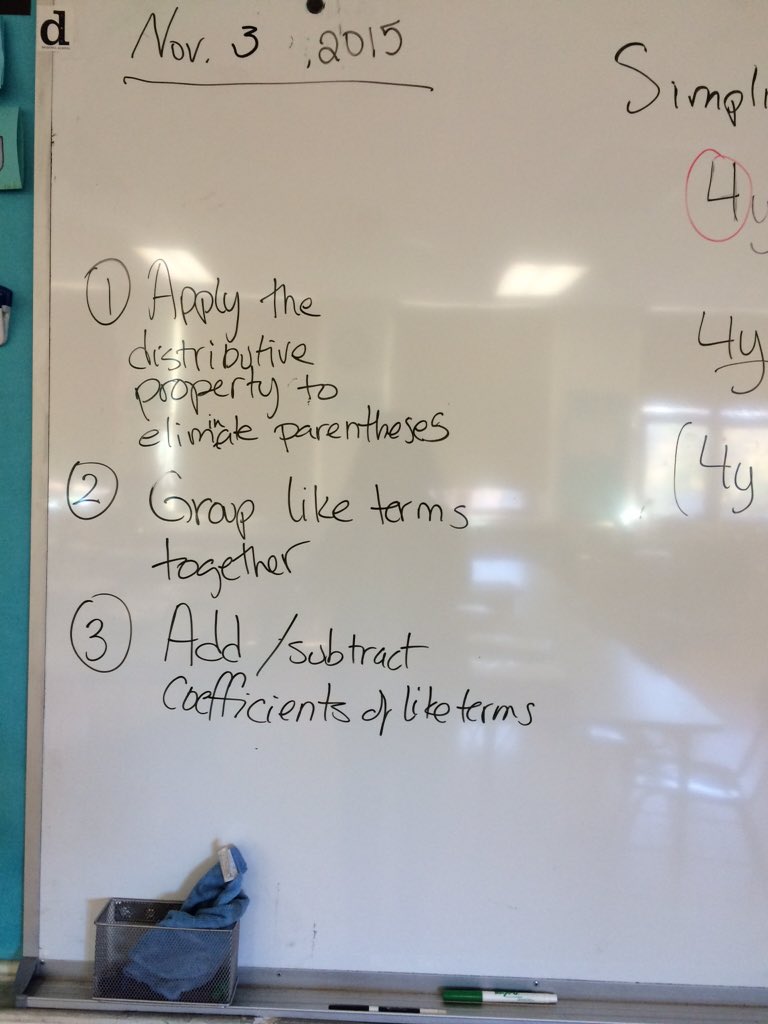 d
Nov. 3 , 2015
① Apply the
distributive
property to
eliminate parentheses
② Group like terms
together
③ Add / subtract
coefficients of like terms
Simpli
4y
4y
(4y